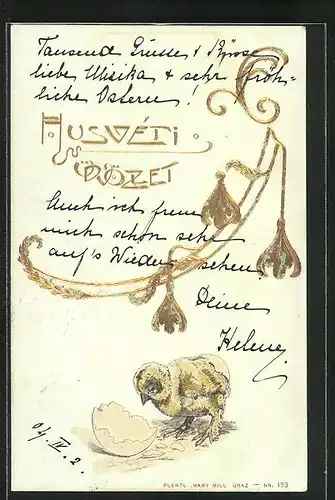 Tausend Grüsse & Küsse
liebe Misika & sehr fröh-
liche Ostern!
HUSVÉTI
ÜDÖZET
Auch ich freue
mich schon sehr
auf's Wieder sehen.
Deine
Helene
04. IV. 2.
PLENTL "MARY MILL" GRAZ — NR. 193